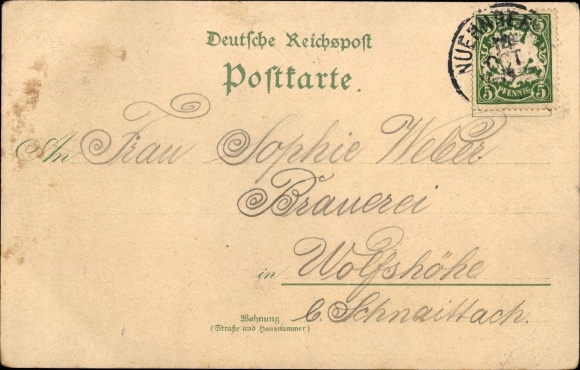 Deutsche Reichspost
Postkarte
5 5
PFENNIG
5 5
NUERNBERG
OCT
An Frau Sophie Weber
Brauerei
in Wolfshöhe
b. Schnaittach.
Wohnung
(Straße und Hausnummer)